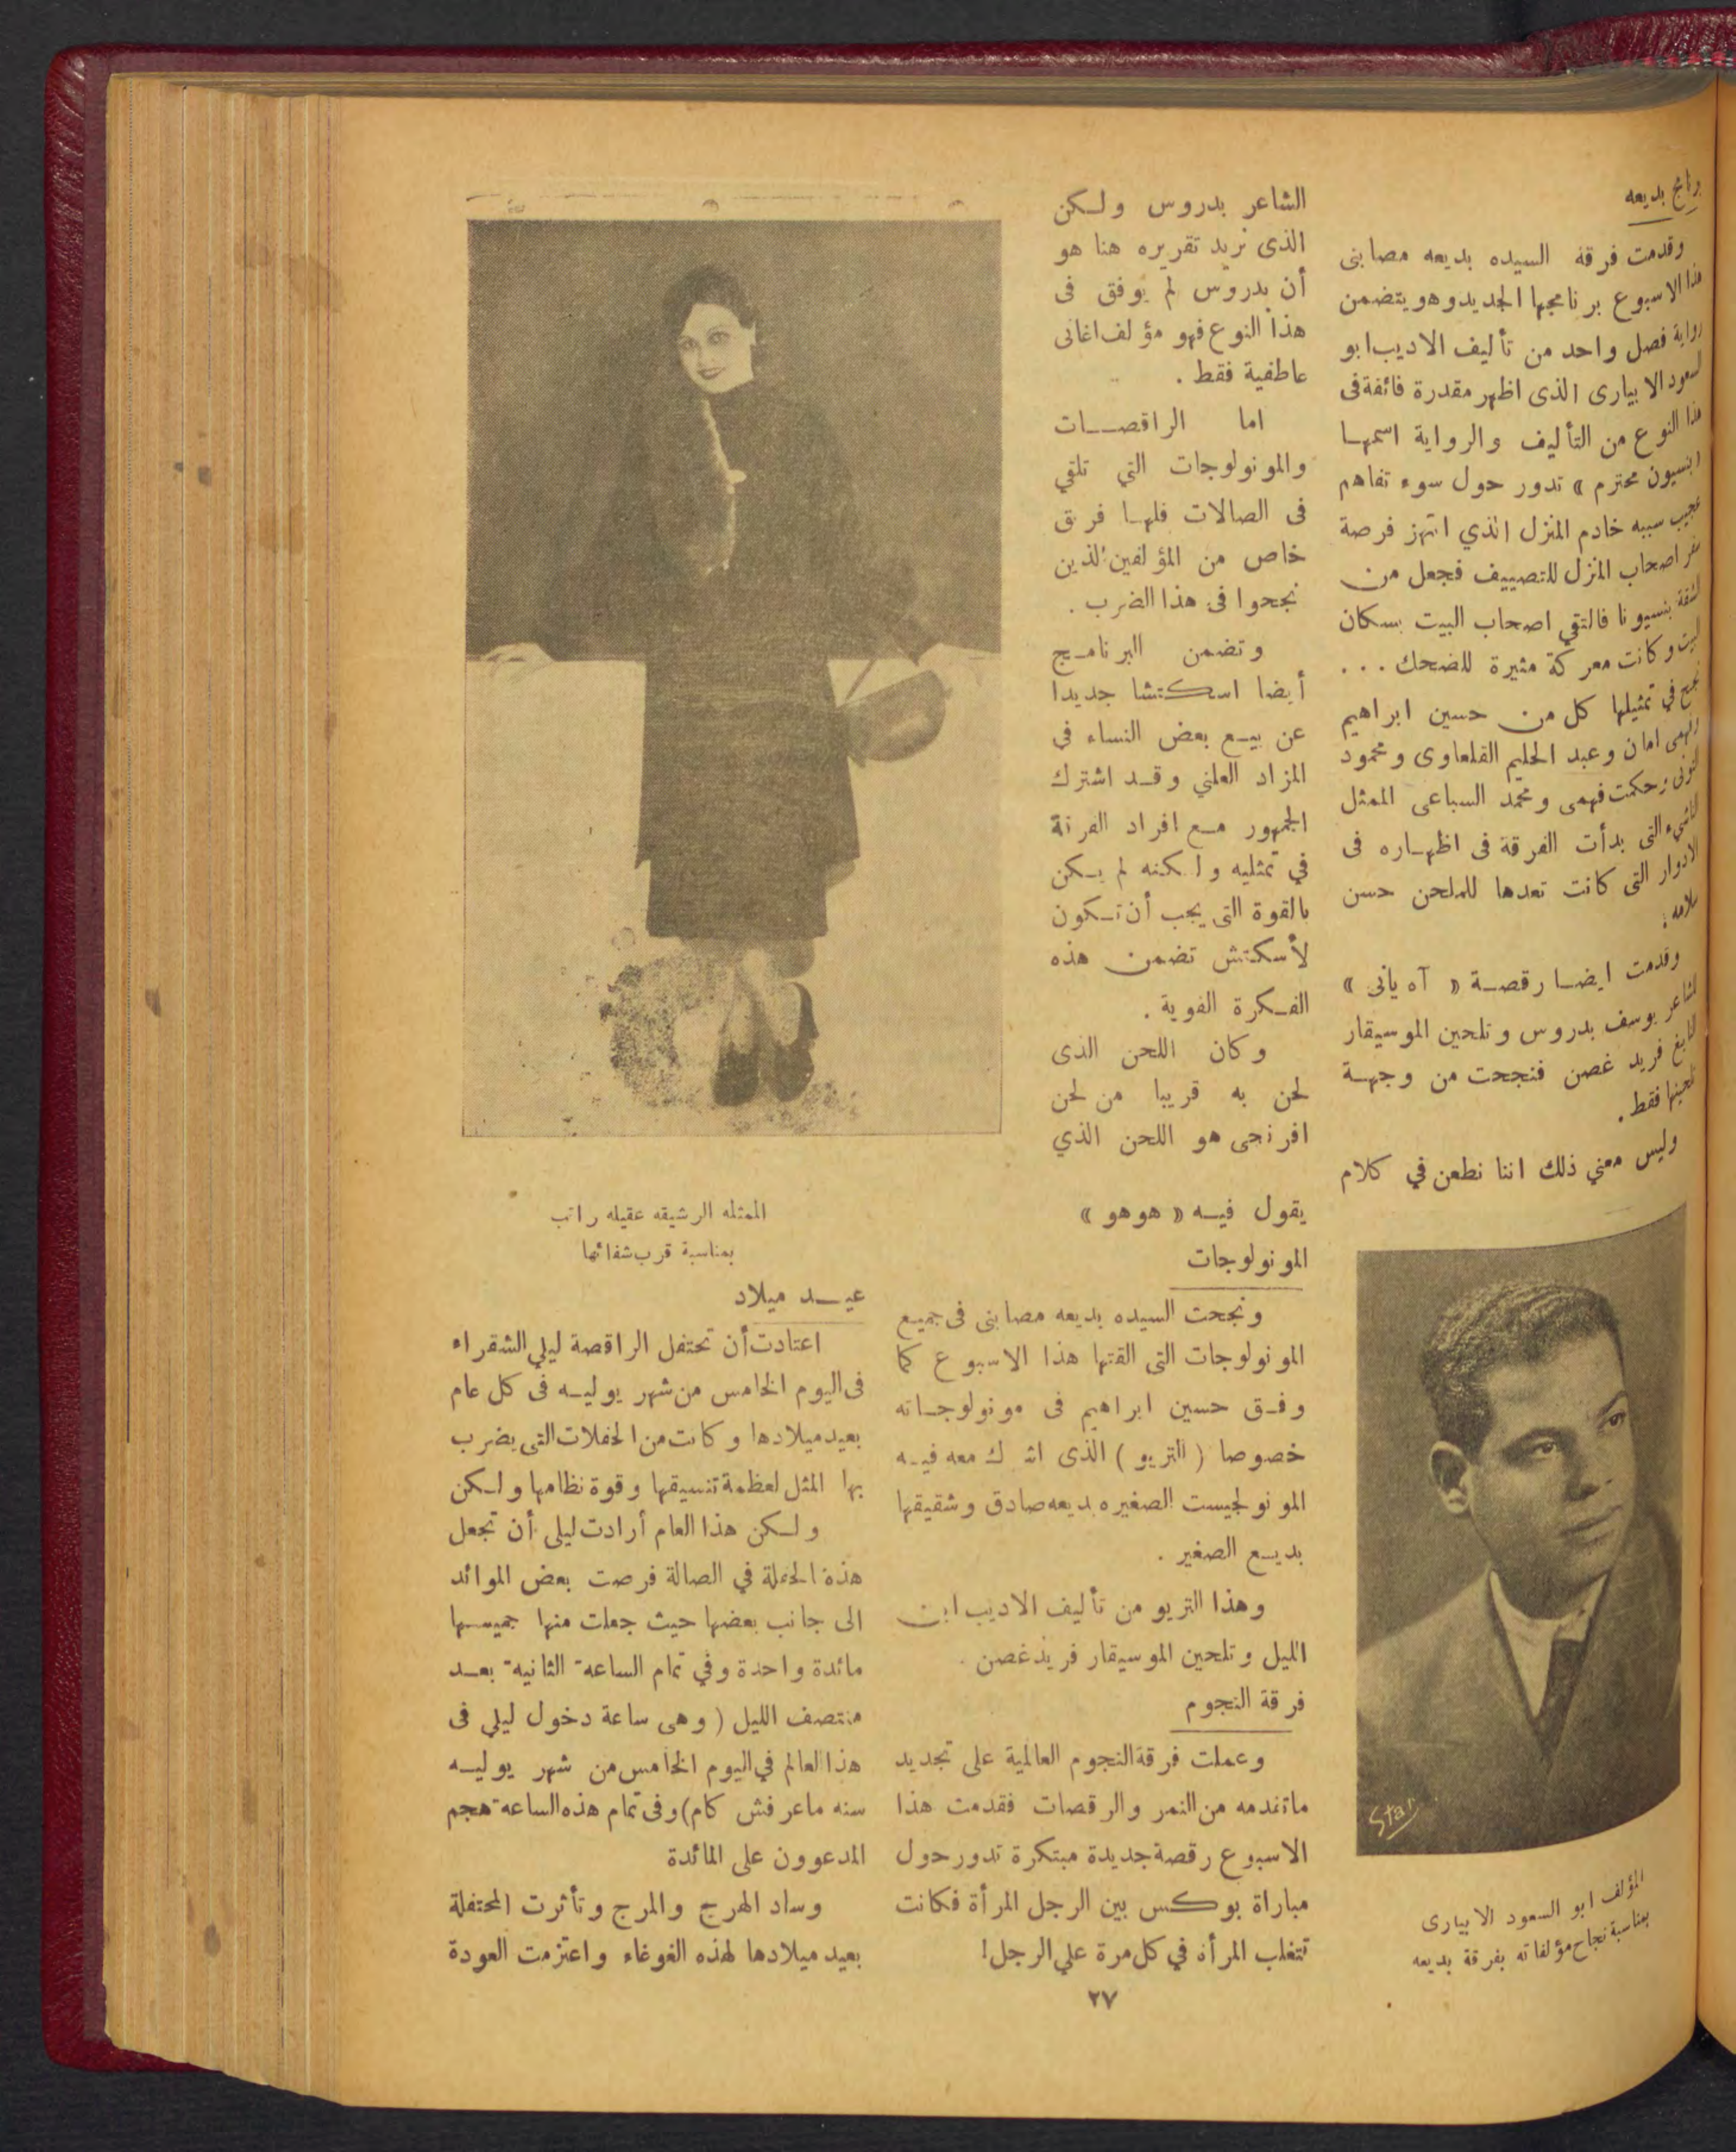 برنامج بديعه
وقدمت فرقة السيده بديعه مصابنى
هذا الاسبوع برنامجها الجديد وهو يتضمن
رواية فصل واحد من تأليف الاديب ابو
السعود الابيارى الذى اظهر مقدرة فائقة فى
هذا النوع من التأليف والرواية اسمها
بنسيون محترم » تدور حول سوء تفاهم
عجيب سببه خادم المنزل الذي انتهز فرصة
سفر اصحاب المنزل للتصييف فجعل من
الشقة بنسيونا فالتقي اصحاب البيت بسكان
البيت وكانت معركة مثيرة للضحك ...
نجح في تمثيلها كل من حسين ابراهيم
وفهمى امان وعبد الحليم القلعاوى ومحمود
وحكمت فهمى ومحمد السباعى الممثل
الناشىء التى بدأت الفرقة فى اظهاره فى
الادوار التى كانت تعدها للملحن حسن
سلامه :
وقدمت ايضا رقصة « آه يانى »
للشاعر يوسف بدروس وتلحين الموسيقار
النابغ فريد غصن فنجحت من وجهة
تلحينها فقط .
وليس معني ذلك اننا نطعن في كلام
Star
المؤلف ابو السعود الابيارى
بمناسبة نجاح مؤلفاته بفرقة بديعه
الشاعر بدروس ولكن
الذى نريد تقريره هنا هو
أن بدروس لم يوفق فى
هذا النوع فهو مؤلف اغانى
عاطفية فقط .
اما الراقصات
والمونولوجات التي تلقي
فى الصالات فلها فريق
خاص من المؤلفين الذين
نجحوا فى هذا الضرب .
وتضمن البرنامج
أيضا اسكتشا جديدا
عن بيع بعض النساء في
المزاد العلني وقد اشترك
الجمهور مع افراد الفرقة
في تمثليه ولكنه لم يكن
بالقوة التى يجب أن تكون
لأسكتش تضمن هذه
الفكرة القوية .
وكان اللحن الذى
لحن به قريبا من لحن
افرنجى هو اللحن الذي
يقول فيه « هوهو »
المونولوجات
ونجحت السيده بديعه مصابنى فى جميع
المونولوجات التى القتها هذا الاسبوع كما
وفق حسين ابراهيم فى مونولوجاته
خصوصا ( التريو ) الذى اشترك معه فيه
المونولجيست الصغيره بديعه صادق وشقيقها
بديع الصغير .
وهذا التريو من تأليف الاديب ابن
الليل وتلحين الموسيقار فريد غصن .
فرقة النجوم
وعملت فرقة النجوم العالمية على تجديد
ماتقدمه من النمر والرقصات فقدمت هذا
الاسبوع رقصة جديدة مبتكرة تدور حول
مباراة بوكس بين الرجل المرأة فكانت
تتغلب المرأه في كل مرة علي الرجل!
الممثله الرشيقه عقيله راتب
بمناسبة قرب شفائها
عيد ميلاد
اعتادت أن تحتفل الراقصة ليلي الشقراء
فى اليوم الخامس من شهر يوليه فى كل عام
بعيد ميلادها وكانت من الحفلات التى يضرب
بها المثل لعظمة تنسيقها وقوة نظامها ولكن
ولكن هذا العام أرادت ليلى أن تجعل
هذة الحفلة في الصالة فرصت بعض الموائد
الى جانب بعضها حيث جعلت منها جميعها
مائدة واحدة وفي تمام الساعة الثانية بعد
منتصف الليل ( وهى ساعة دخول ليلي فى
هذا العالم في اليوم الخامس من شهر يوليه
سنه ماعرفش كام) وفى تمام هذه الساعة هجم
المدعوون على المائدة
وساد الهرج والمرج وتأثرت المحتفلة
بعيد ميلادها لهذه الغوغاء واعتزمت العودة
٢٧